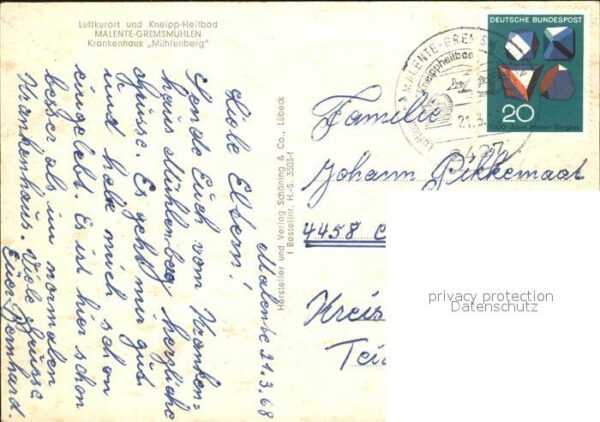 Luftkurort und Kneipp-Heilbad
MALENTE-GREMSMÜHLEN
Krankenhaus „Mühlenberg"
Malente 21.3.68
Liebe Eltern!
Sende Euch vom Kranken=
haus Mühlenberg herzliche
Grüsse. Es geht mir gut
und habe mich schon
eingelebt. Es ist hier schon
besser als im normalen
Krankenhaus. Viele Grüsse
Euer Bernhard.
Hersteller und Verlag Schöning & Co., Lübeck
Bestellnr. H.-S. 3505-f
MALENTE-GREMS
Kneippheilbad
21.3.
DEUTSCHE BUNDESPOST
20
1000 Jahre Harzer Bergbau
Familie
Johann Pikkemaat
4458
Kreis
privacy protection
Datenschutz